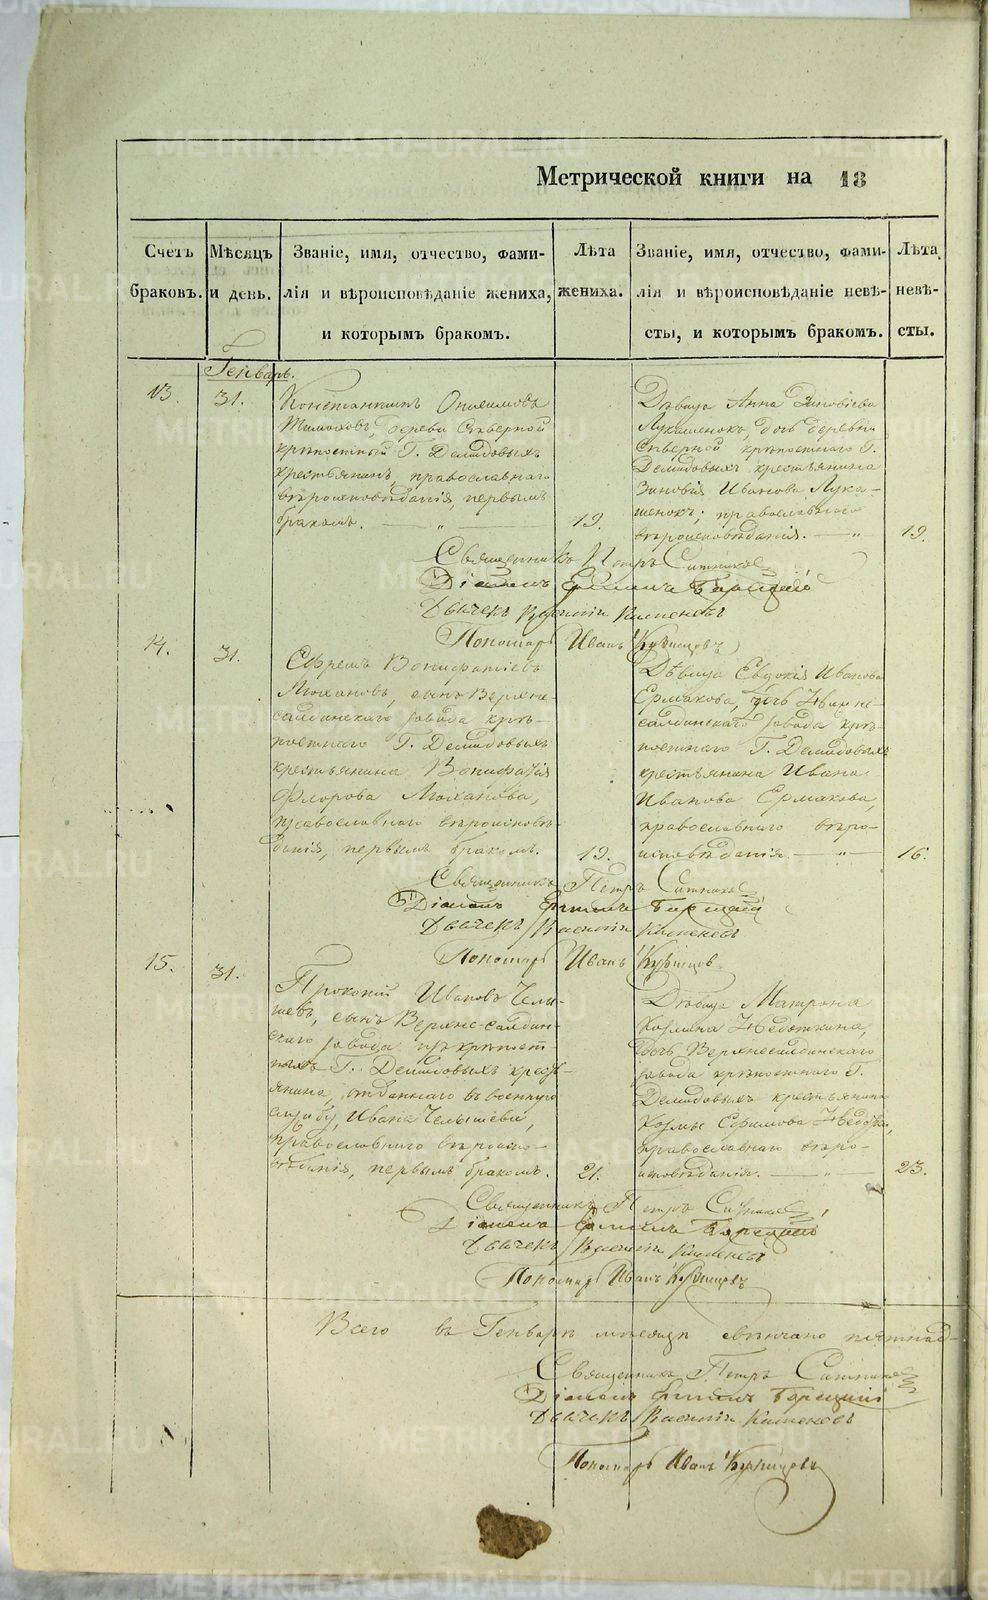 Метрической книги на 18
Счетъ браковъ.
Мѣсяцъ и день.
Званіе, имя, отчество, фами-
лія и вѣроисповѣданіе жениха,
и которымъ бракомъ.
Лѣта жениха.
Званіе, имя, отчество, фами-
лія и вѣроисповѣданіе невѣ-
сты, и которымъ бракомъ.
Лѣта невѣ-
сты.
Генварь.
13.
31.
Константинъ
деревни Сѣверной
крѣпостный Г. Демидовыхъ
крестьянинъ, православнаго
вѣроисповѣданія, первымъ
бракомъ. — „ —
19.
Дѣвица Анна Зиновіева
Лукашенокъ, дочь деревни
Сѣверной крѣпостнаго Г.
Демидовыхъ крестьянина
Зиновія Иванова Лука-
шенокъ; православнаго
вѣроисповѣданія. — „
19.
Священникъ Петръ Ситниковъ
Діаконъ
Дьячекъ Василій Каменевъ
Пономарь Иванъ Кузнецовъ
14.
31.
Ефремъ Вонифатіевъ
Мохановъ, сынъ Верхне-
салдинскаго завода крѣ-
постнаго Г. Демидовыхъ
крестьянина Вонифатія
Флорова Моханова,
православнаго вѣроисповѣ-
данія, первымъ бракомъ.
19.
Дѣвица Евдокія Иванова
Ермакова, дочь Нижне-
салдинскаго завода крѣ-
постнаго Г. Демидовыхъ
крестьянина Ивана
Иванова Ермакова,
православнаго вѣро-
исповѣданія. — „ —
16.
Священникъ Петръ Ситниковъ
Діаконъ
Дьячекъ Василій Каменевъ
Пономарь Иванъ Кузнецов.
15.
31.
Прокопій Ивановъ Челы-
шевъ, сынъ Верхне-салдин-
скаго завода крѣпост-
Г. Демидовыхъ кресть-
янина, отданнаго въ военную
службу, Ивана Челышева,
православнаго вѣроиспо-
вѣданія, первымъ бракомъ.
21.
Дѣвица Матрона
Козмина Недоткина,
дочь Верхнесалдинскаго
завода крѣпостнаго Г.
Демидовыхъ крестьянина
Козмы Ефимова
православнаго вѣро-
исповѣданія. — „ —
23.
Священникъ Петръ Ситниковъ
Діаконъ
Дьячекъ Василій Каменевъ
Пономарь Иванъ Кузнецовъ
Всего въ Генварѣ мѣсяцѣ свѣнчано пятнад-
Священникъ Петръ Ситниковъ
Діаконъ
Дьячекъ Василій Каменевъ
Пономарь Иванъ Кузнецовъ
METRIKI.GASO-URAL.RU